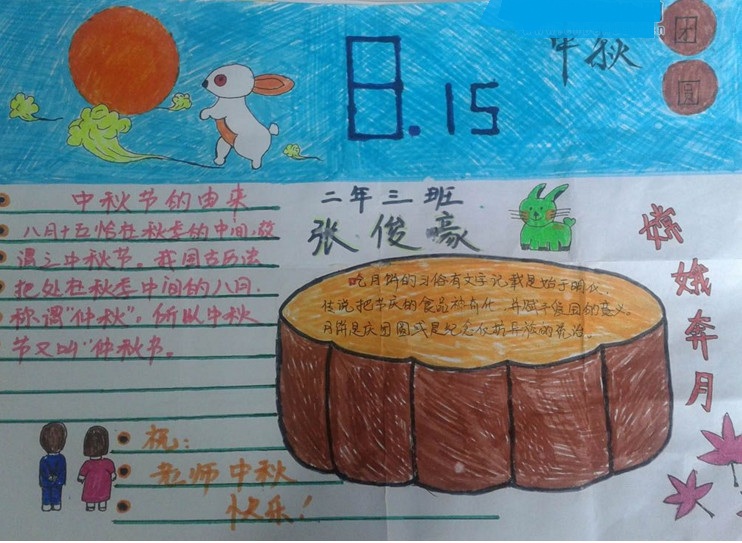 8.15
中秋
团
圆
中秋节的由来
八月十五恰在秋季的中间,故
谓之中秋节。我国古历法
把处在秋季中间的八月,
称谓"仲秋",所以中秋
节又叫"仲秋书。
二年三班
张俊豪
吃月饼的习俗有文字记载是始于明代,
传说把节庆的食品称月化,并赋予食团的意义。
月饼是庆团圆或是纪念
嫦娥奔月
祝:
老师中秋
快乐!